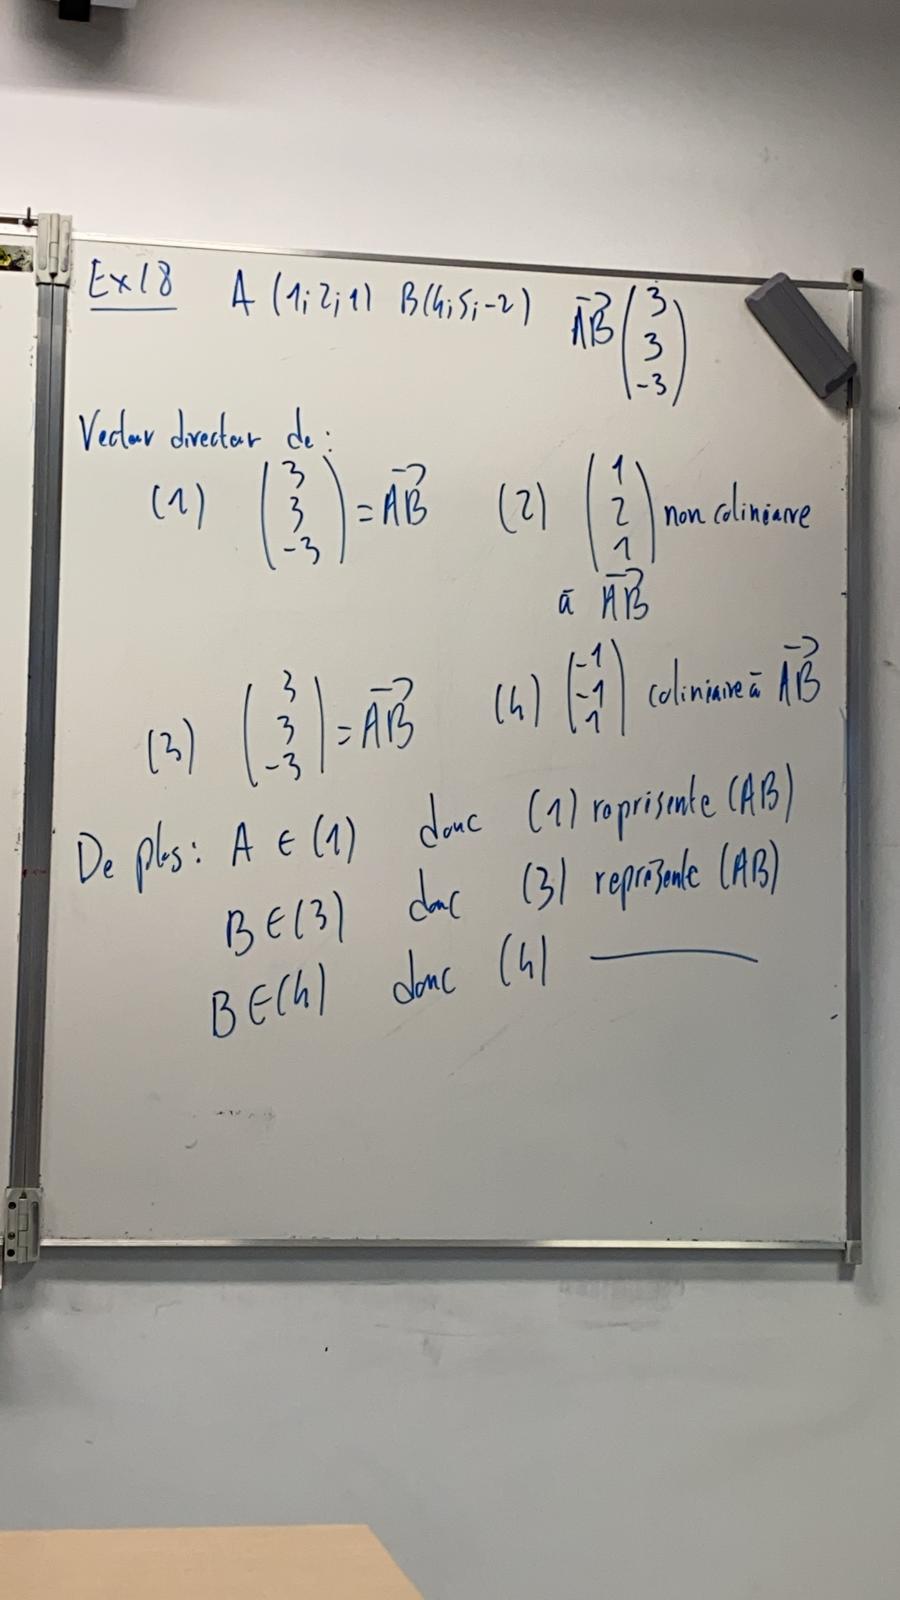 Ex18 A (1;2;1) B(4;5;-2) →AB (3 3 -3)
Vecteur directeur de :
(1) (3 3 -3) = →AB (2) (1 2 1) non coliniaire
à →AB
(3) (3 3 -3) = →AB (4) (-1 -1 1) coliniaire à →AB
De plus : A ∈ (1) donc (1) représente (AB)
B ∈ (3) donc (3) représente (AB)
B ∈ (4) donc (4) ———